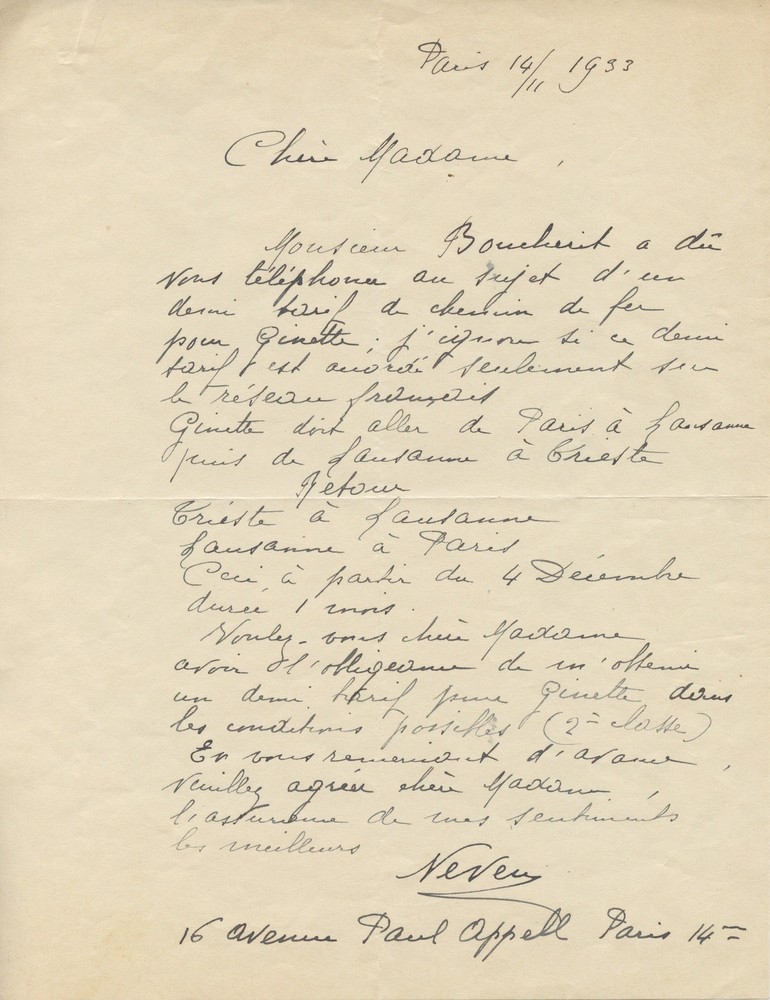 Paris 14/11 1933
Chère Madame,
Monsieur Boucherit a dû
vous téléphoner au sujet d'un
demi tarif de chemin de fer
pour Ginette; j'ignore si ce demi
tarif est accordé seulement sur
le réseau français
Ginette doit aller de Paris à Lausanne
puis de Lausanne à Trieste
Retour
Trieste à Lausanne
Lausanne à Paris
Ceci à partir du 4 Décembre
durée 1 mois.
Voulez-vous chère Madame
avoir l'obligeance de m'obtenir
un demi tarif pour Ginette dans
les conditions possibles (2me classe)
En vous remerciant d'avance,
veuillez agréer chère Madame,
l'assurance de mes sentiments
les meilleurs
Neveu
16 avenue Paul Appell Paris 14me